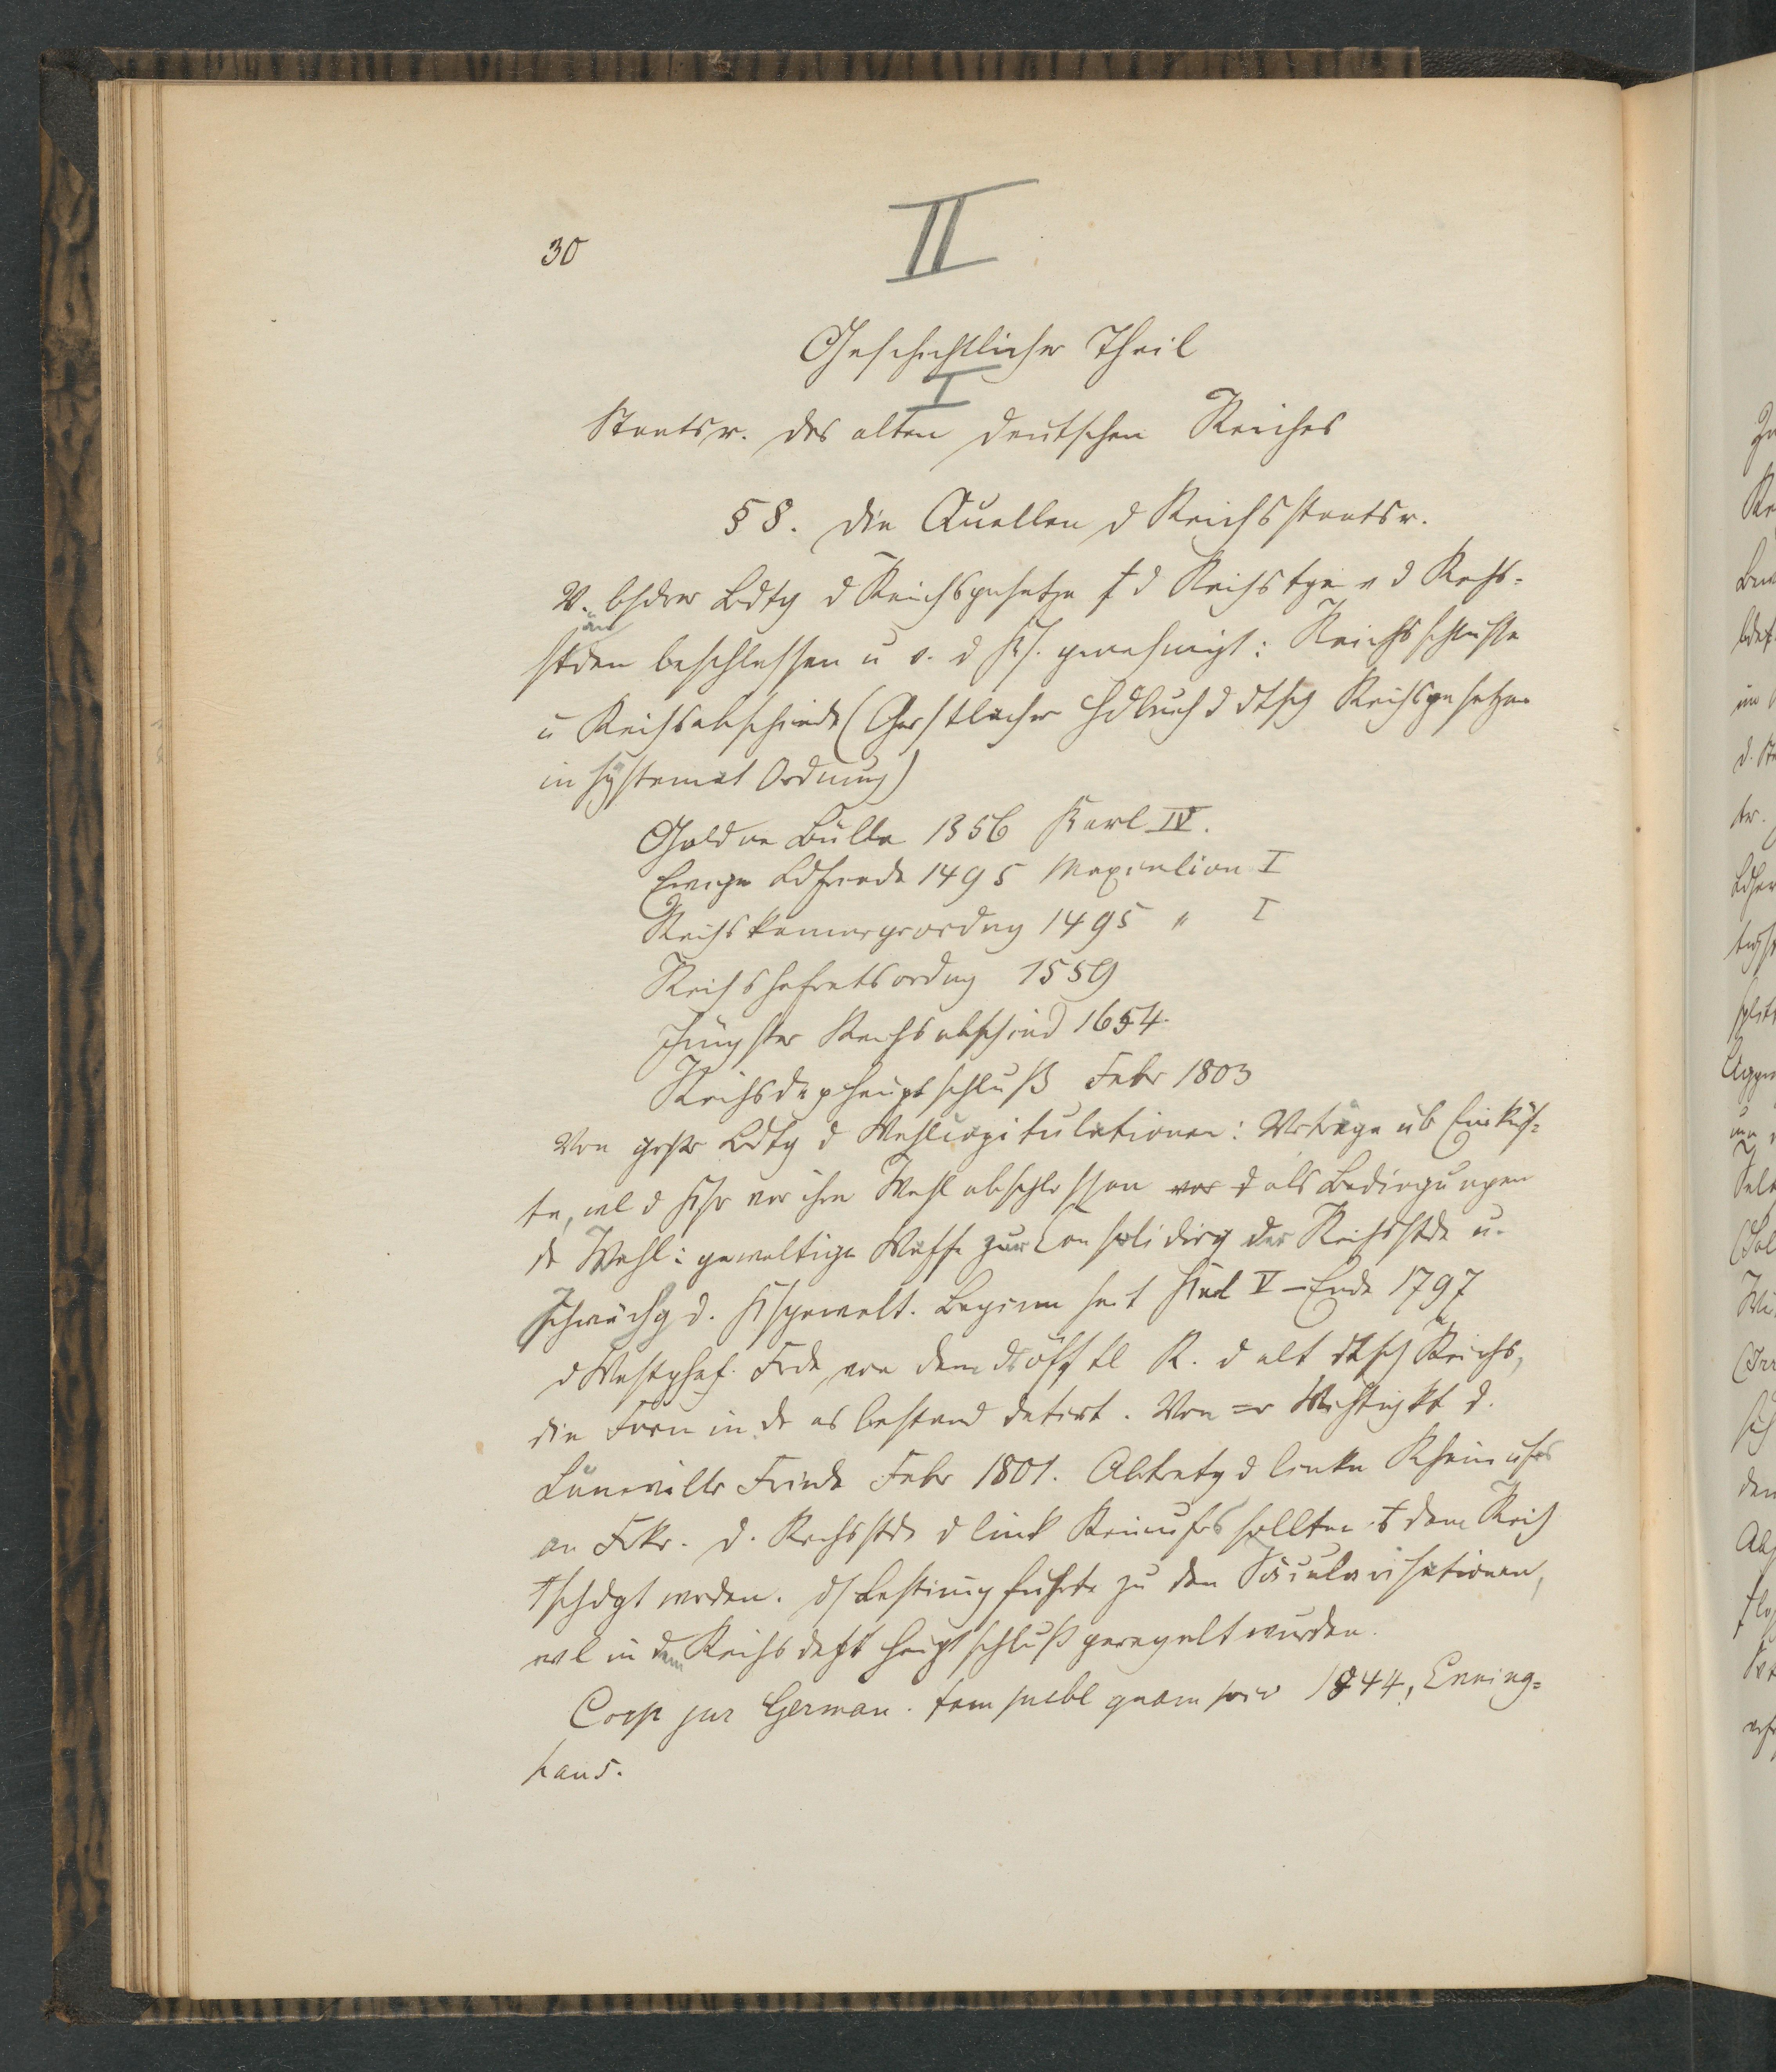 30
II
Geschichtlicher Theil
I
Staatsr. des alten deutschen Reiches
§ 8. die Quellen d Reichsstaatsr.
V. bsdrer Bdtg d Reichsgesetze d Reichstge v d Rchs-
stden beschlossen u v. d Ks. genehmigt: Reichsschlüsse
u Reichsabschiede (Gerstlacher Hdbuch d dtsch Reichsgesetze
in systemat Ordnung)
Goldne Bulle 1356 Karl IV.
Ewige Ldfriede 1495 Maximilian I
Reichskammergordng 1495 " I
Reichshofratsordng 1559
Jüngster Reichsabschied 1654.
Reichsdephauptschluß Febr 1803
Von grßr Bdtg d Wahlcapitulationen: Vrträge üb Einküf-
te, wl d Ksr vor ihrer Wahl abschlossen als Bedingungen
dr Wahl: gewaltige Waffe zur Consolidirg der Reichsstde u.
Schwächg d. Ksgewalt. Beginn seit Karl V – Ende 1797
d Westphäl. Frde, von dem ds öfftl R. d alt dtsch Reichs,
die Form in dr es bestand datirt. Von =r Wichtigkt d.
Lüneviller Friede Febr 1801. Abtretg d linken Rheinufrs
an Frkr. d. Rchsstde d link Reinufrs sollten dem Reich
tschdgt werden. ds Bestimg führte zu den Säcularisationen,
wl in dem Reichsdept hauptschluß geregelt wurden.
Corp jur German. tam publ quam priv 1844, Emming-
haus.